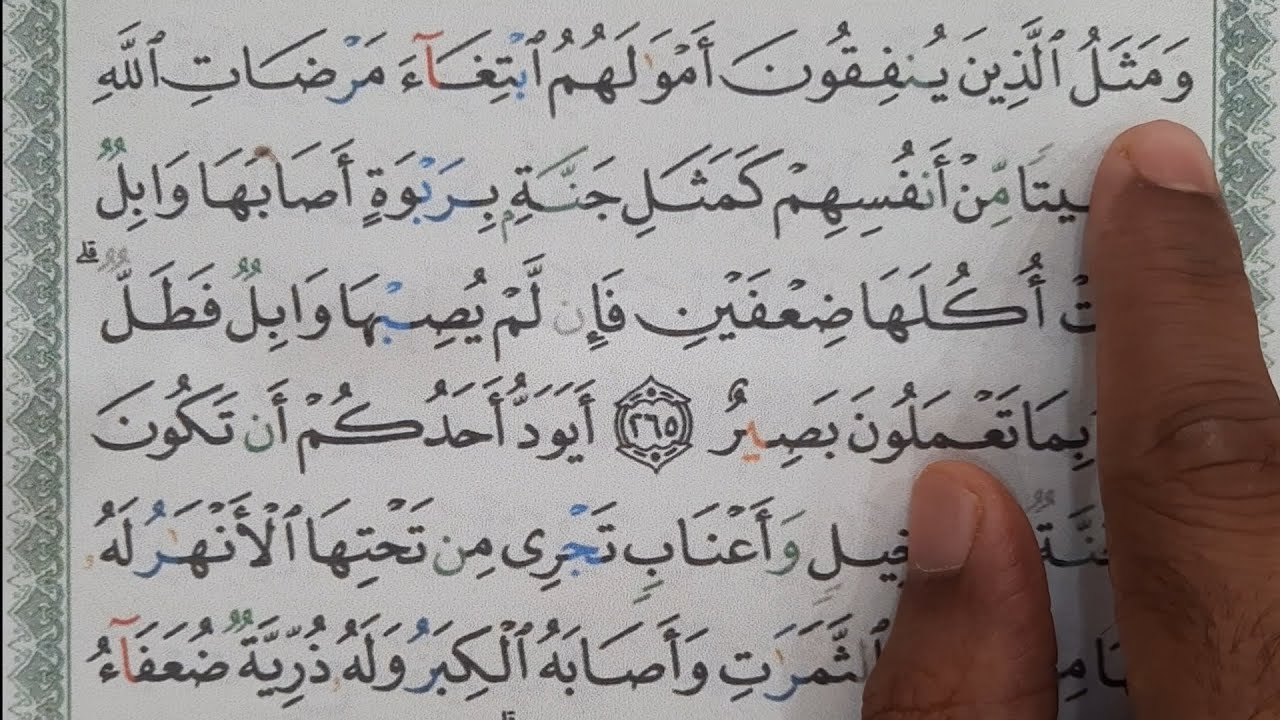 وَمَثَلُ ٱلَّذِينَ يُنفِقُونَ أَمۡوَٰلَهُمُ ٱبۡتِغَآءَ مَرۡضَاتِ ٱللَّهِ
مِّنۡ أَنفُسِهِمۡ كَمَثَلِ جَنَّةِۭ بِرَبۡوَةٍ أَصَابَهَا وَابِلٞ
أُكُلَهَا ضِعۡفَيۡنِ فَإِن لَّمۡ يُصِبۡهَا وَابِلٞ فَطَلّٞۗ
بِمَا تَعۡمَلُونَ بَصِيرٌ ٢٦٥ أَيَوَدُّ أَحَدُكُمۡ أَن تَكُونَ
وَأَعۡنَابٖ تَجۡرِي مِن تَحۡتِهَا ٱلۡأَنۡهَٰرُ لَهُۥ
ٱلثَّمَرَٰتِ وَأَصَابَهُ ٱلۡكِبَرُ وَلَهُۥ ذُرِّيَّةٞ ضُعَفَآءُ